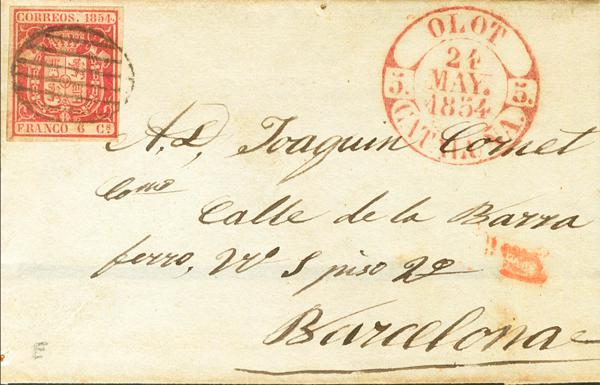 CORREOS. 1854.
FRANCO 6 Cs
OLOT
24
MAY.
1854
5. 5.
CATALUÑA.
A. D. Joaquin Cornet
Como
Calle de la Barra
ferro, Nº 5 piso 2º
Barcelona